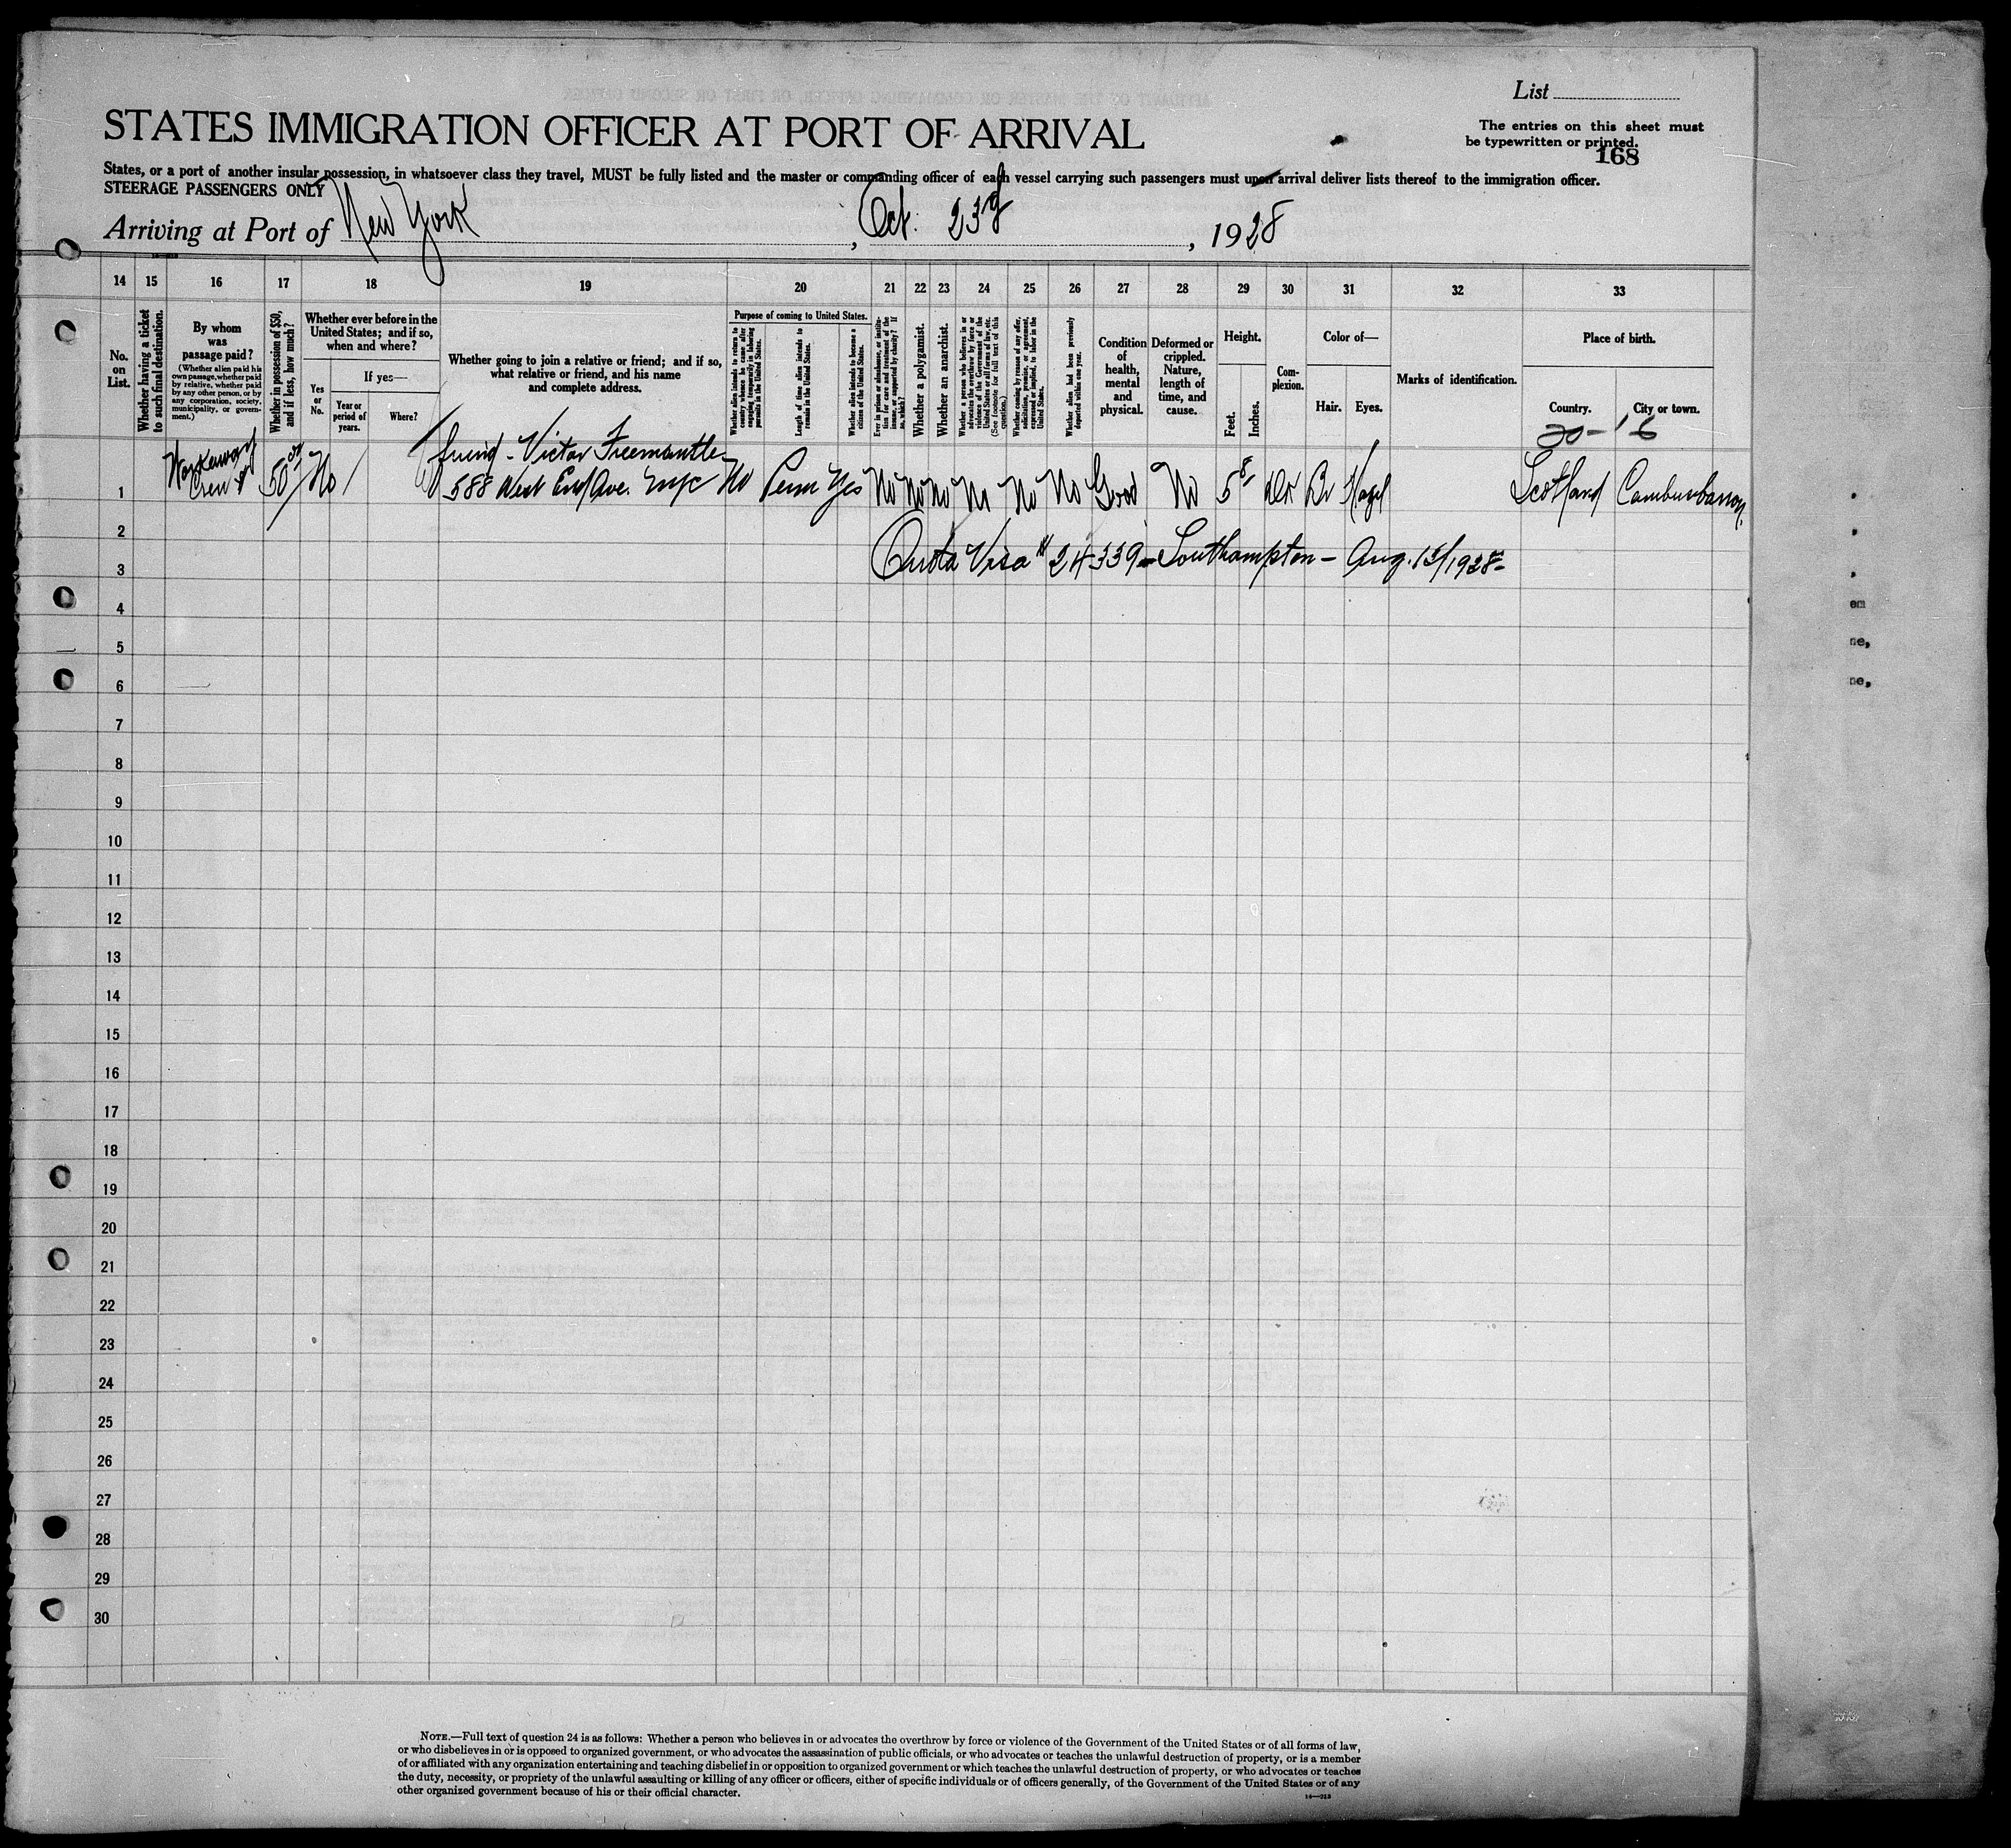 List
STATES IMMIGRATION OFFICER AT PORT OF ARRIVAL
The entries on this sheet must
be typewritten or printed.
168
States, or a port of another insular possession, in whatsoever class they travel, MUST be fully listed and the master or commanding officer of each vessel carrying such passengers must upon arrival deliver lists thereof to the immigration officer.
STEERAGE PASSENGERS ONLY
Arriving at Port of New York, Oct. 23d, 1928
14 15 16 17 18 19 20 21 22 23 24 25 26 27 28 29 30 31 32 33
No. on List.
Whether having a ticket to such final destination.
By whom was passage paid?
(Whether alien paid his own passage, whether paid by relative, whether paid by any other person, or by any corporation, society, municipality, or government.)
Whether in possession of $50, and if less, how much?
Whether ever before in the United States; and if so, when and where?
Yes or No.
If yes—
Year or period of years.
Where?
Whether going to join a relative or friend; and if so, what relative or friend, and his name and complete address.
Purpose of coming to United States.
Whether alien intends to return to country whence he came after engaging temporarily in laboring pursuits in the United States.
Length of time alien intends to remain in the United States.
Whether alien intends to become a citizen of the United States.
Ever in prison or almshouse, or institution for care and treatment of the insane, or supported by charity? If so, which?
Whether a polygamist.
Whether an anarchist.
Whether a person who believes in or advocates the overthrow by force or violence of the Government of the United States or all forms of law, etc. (See footnote for full text of this question.)
Whether coming by reason of any offer, solicitation, promise, or agreement, expressed or implied, to labor in the United States.
Whether alien had been previously deported within one year.
Condition of health, mental and physical.
Deformed or crippled. Nature, length of time, and cause.
Height.
Feet. Inches.
Complexion.
Color of—
Hair. Eyes.
Marks of identification.
Place of birth.
Country. City or town.
20-16
1 Workaway Crew 50 00/ No friend - Victor Freemantle
588 West End Ave. NYC No Perm Yes No No No No No No Good No 5 8 Dk Br Hazel Scotland Cambusbarron
2
Quota Visa # 24339 - Southampton - Aug. 15/1928 -
3
4
5
6
7
8
9
10
11
12
13
14
15
16
17
18
19
20
21
22
23
24
25
26
27
28
29
30
em
ne,
ne,
NOTE.—Full text of question 24 is as follows: Whether a person who believes in or advocates the overthrow by force or violence of the Government of the United States or of all forms of law,
or who disbelieves in or is opposed to organized government, or who advocates the assassination of public officials, or who advocates or teaches the unlawful destruction of property, or is a member
of or affiliated with any organization entertaining and teaching disbelief in or opposition to organized government or which teaches the unlawful destruction of property, or who advocates or teaches
the duty, necessity, or propriety of the unlawful assaulting or killing of any officer or officers, either of specific individuals or of officers generally, of the Government of the United States or of any
other organized government because of his or their official character.
14—313